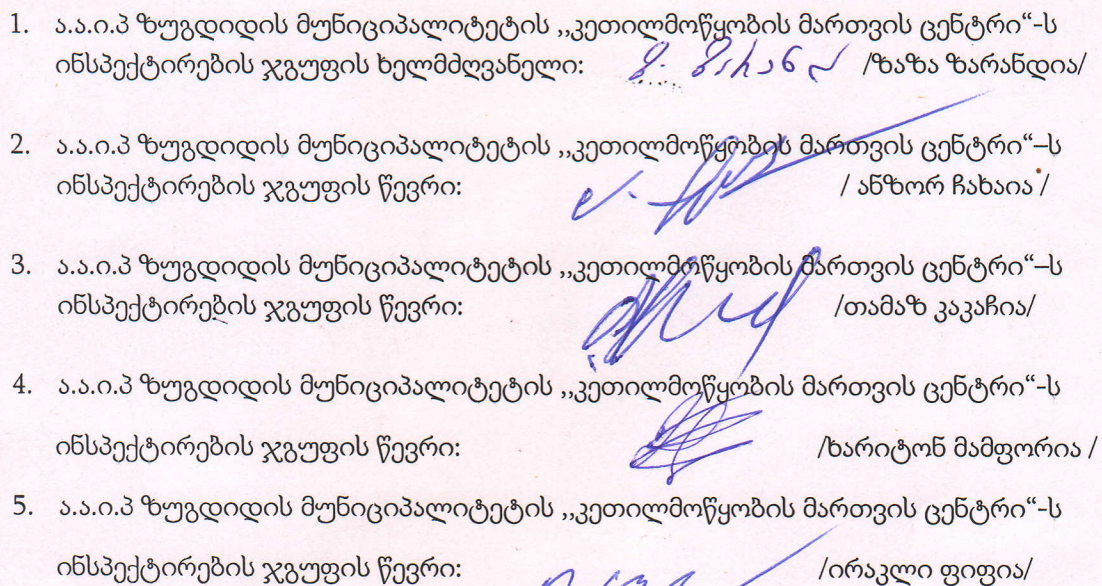 1. ა.ა.ი.პ ზუგდიდის მუნიციპალიტეტის ,,კეთილმოწყობის მართვის ცენტრი“-ს
ინსპექტირების ჯგუფის ხელმძღვანელი: ზ. ზარანდ /ზაზა ზარანდია/
2. ა.ა.ი.პ ზუგდიდის მუნიციპალიტეტის ,,კეთილმოწყობის მართვის ცენტრი“–ს
ინსპექტირების ჯგუფის წევრი: / ანზორ ჩახაია /
3. ა.ა.ი.პ ზუგდიდის მუნიციპალიტეტის ,,კეთილმოწყობის მართვის ცენტრი“–ს
ინსპექტირების ჯგუფის წევრი: /თამაზ კაკაჩია/
4. ა.ა.ი.პ ზუგდიდის მუნიციპალიტეტის ,,კეთილმოწყობის მართვის ცენტრი“-ს
ინსპექტირების ჯგუფის წევრი: /ხარიტონ მამფორია /
5. ა.ა.ი.პ ზუგდიდის მუნიციპალიტეტის ,,კეთილმოწყობის მართვის ცენტრი“-ს
ინსპექტირების ჯგუფის წევრი: /ირაკლი ფიფია/